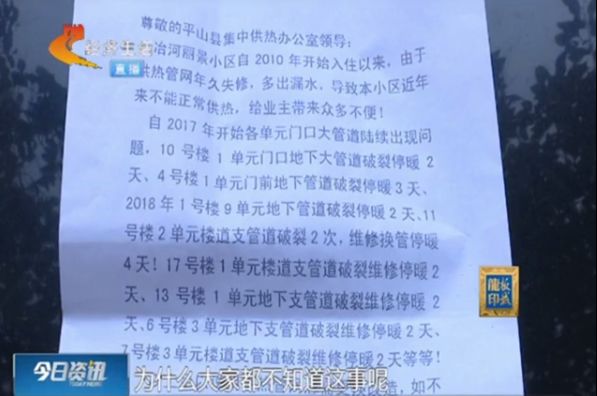 直播
尊敬的平山县集中供热办公室领导：
冶河丽景小区自2010年开始入住以来，由于
供热管网年久失修，多出漏水，导致本小区近年
来不能正常供热，给业主带来众多不便！
自2017年开始各单元门口大管道陆续出现问
题，10号楼1单元门口地下大管道破裂停暖2
天、4号楼1单元门前地下管道破裂停暖3天、
2018年1号楼9单元地下管道破裂停暖2天、11
号楼2单元楼道支管道破裂2次，维修换管停暖
4天！17号楼1单元楼道支管道破裂维修停暖2
天、13号楼1单元地下支管道破裂维修停暖2
天、6号楼3单元地下支管道破裂维修停暖2天、
7号楼3单元地下支管道破裂维修停暖2天等等！
造，如不
今日资讯
TODAY NEWS
为什么大家都不知道这事呢